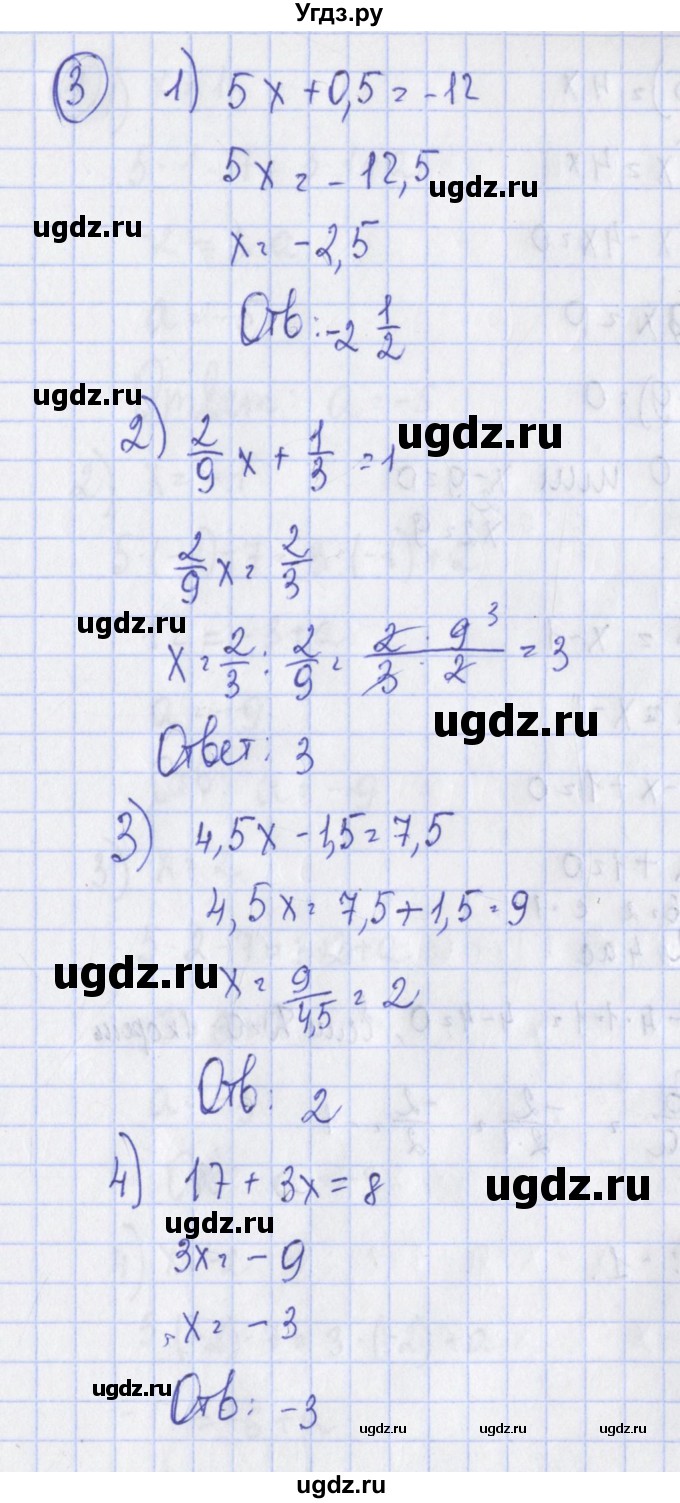 Угдз.ру
3 1) 5x + 0,5 = -12
5x = -12,5
ugdz.ru
ugdz.ru
x = -2,5
Отв: -2 1/2
ugdz.ru
2) 2/9 x + 1/3 = 1
ugdz.ru
2/9 x = 2/3
ugdz.ru
x = 2/3 : 2/9 = 2 · 9 3 / 3 · 2 = 3
ugdz.ru
Ответ: 3
3) 4,5x - 1,5 = 7,5
4,5x = 7,5 + 1,5 = 9
ugdz.ru
x = 9/4,5 = 2
Отв: 2
4) 17 + 3x = 8
ugdz.ru
ugdz.ru
3x = -9
x = -3
ugdz.ru
Отв: -3
ugdz.ru ugdz.ru ugdz.ru
ugdz.ru